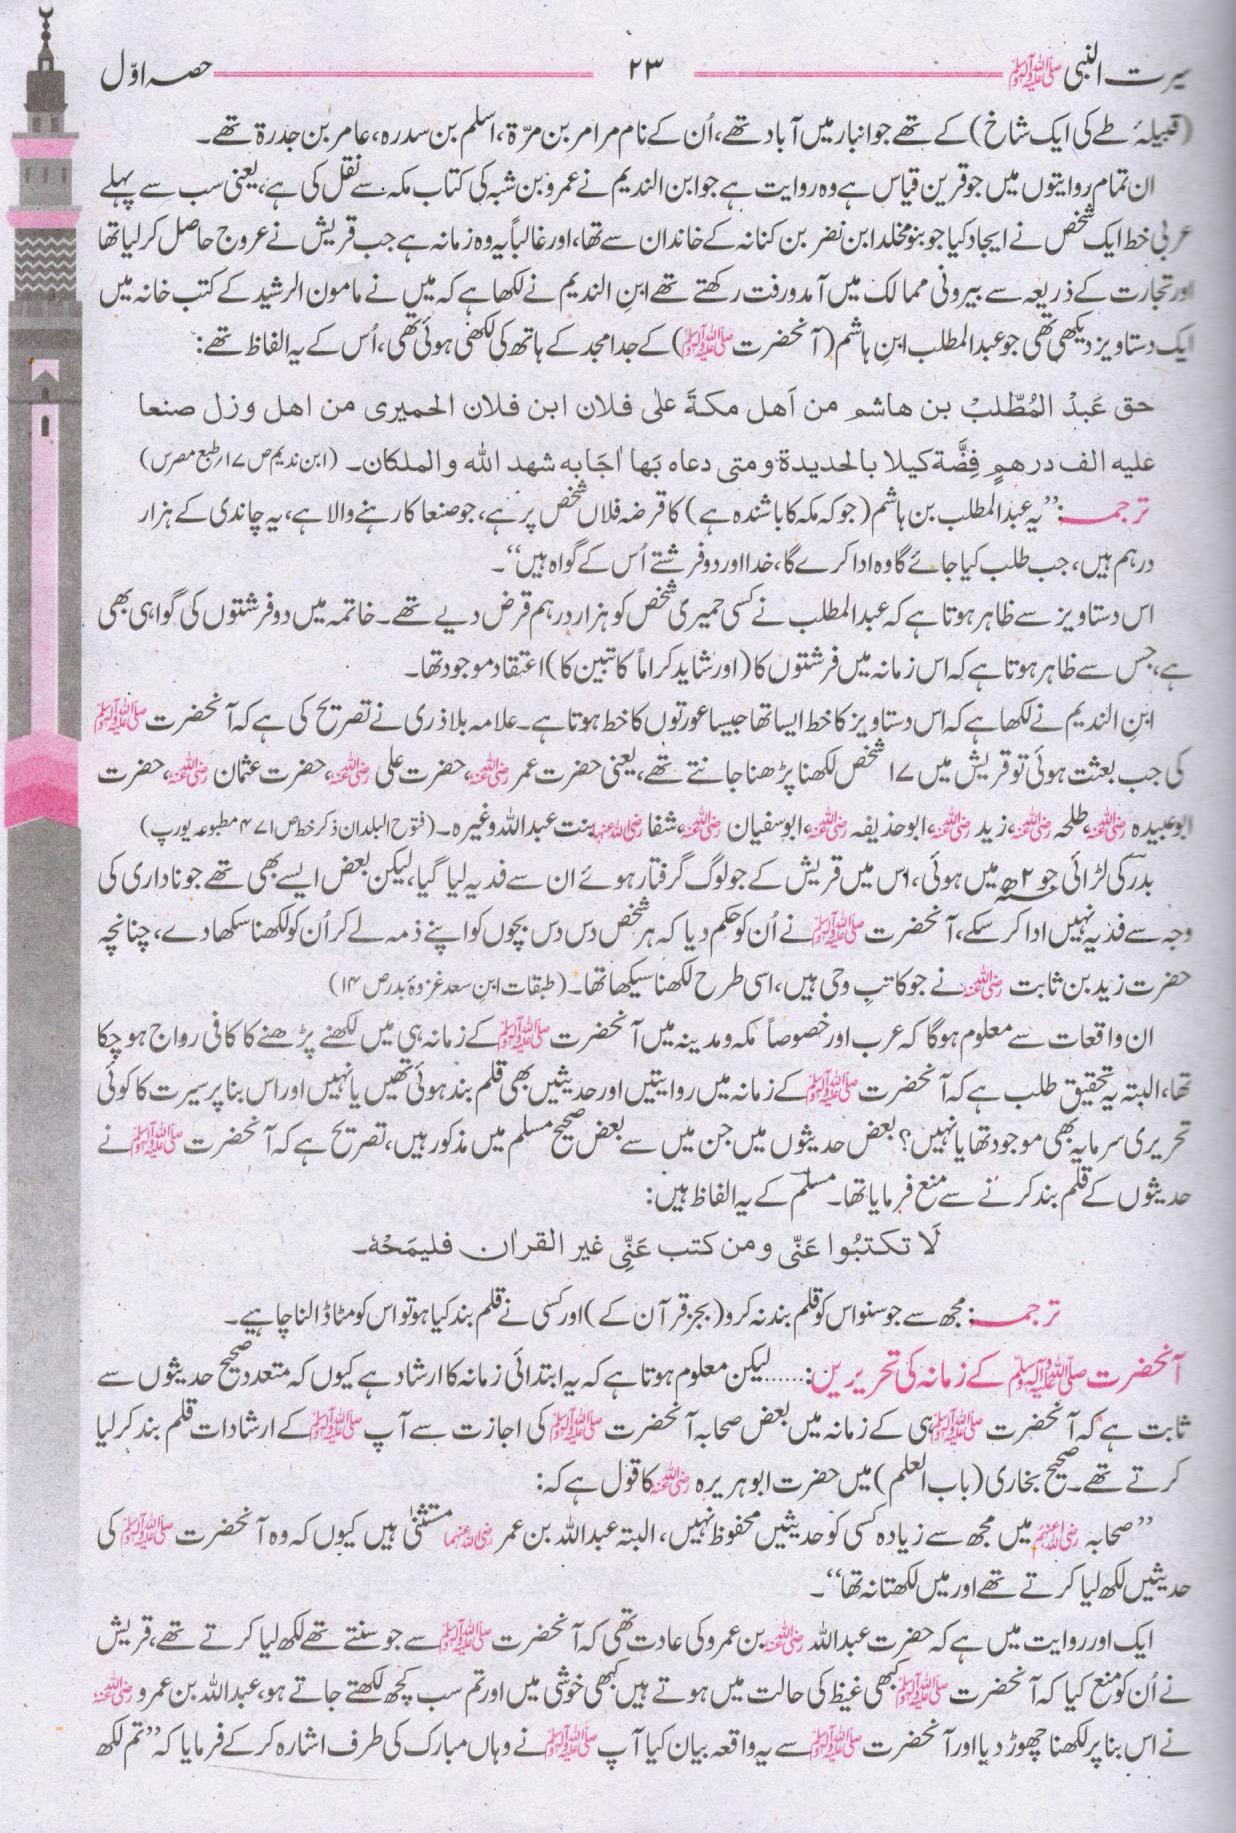 سیرت النبی ﷺ ۲۳ حصہ اوّل
(قبیلۂ طے کی ایک شاخ) کے تھے جو انبار میں آباد تھے، اُن کے نام مرامر بن مرّۃ، اسلم بن سدرہ، عامر بن جدرۃ تھے۔
ان تمام روایتوں میں جو قرین قیاس ہے وہ روایت ہے جو ابن الندیم نے عمرو بن شبہ کی کتاب مکہ سے نقل کی ہے، یعنی سب سے پہلے
عربی خط ایک شخص نے ایجاد کیا جو بنو مخلد ابن نضر بن کنانہ کے خاندان سے تھا، اور غالباً یہ وہ زمانہ ہے جب قریش نے عروج حاصل کر لیا تھا
اور تجارت کے ذریعہ سے بیرونی ممالک میں آمدورفت رکھتے تھے ابنِ الندیم نے لکھا ہے کہ میں نے مامون الرشید کے کتب خانہ میں
ایک دستاویز دیکھی تھی جو عبدالمطلب ابنِ ہاشم (آنحضرت ﷺ) کے جد امجد کے ہاتھ کی لکھی ہوئی تھی، اُس کے یہ الفاظ تھے:
حق عَبدُ المُطّلبْ بن هاشم من اَهل مكةَ علٰی فلان ابن فلان الحمیری من اهل وزل صنعا
علیه الف درهمٍ فِضَّة کیلا بالحدیدة ومتی دعاه بَها اجَابه شهد الله والملکان۔ (ابن ندیم ص ۱۷ طبع مصر س)
ترجمہ: ”یہ عبدالمطلب بن ہاشم (جو کہ مکہ کا باشندہ ہے) کا قرضہ فلاں شخص پر ہے، جو صنعا کا رہنے والا ہے، یہ چاندی کے ہزار
درہم ہیں، جب طلب کیا جائے گا وہ ادا کرے گا، خدا اور دو فرشتے اُس کے گواہ ہیں“۔
اس دستاویز سے ظاہر ہوتا ہے کہ عبدالمطلب نے کسی حمیری شخص کو ہزار درہم قرض دیے تھے۔ خاتمہ میں دو فرشتوں کی گواہی بھی
ہے، جس سے ظاہر ہوتا ہے کہ اس زمانہ میں فرشتوں کا (اور شاید کراماً کاتبین کا) اعتقاد موجود تھا۔
ابنِ الندیم نے لکھا ہے کہ اس دستاویز کا خط ایسا تھا جیسا عورتوں کا خط ہوتا ہے۔ علامہ بلاذری نے تصریح کی ہے کہ آنحضرت ﷺ
کی جب بعثت ہوئی تو قریش میں ۱۷ شخص لکھنا پڑھنا جانتے تھے، یعنی حضرت عمر رضی اللہ عنہ، حضرت علی رضی اللہ عنہ، حضرت عثمان رضی اللہ عنہ، حضرت
ابوعبیدہ رضی اللہ عنہ، طلحہ رضی اللہ عنہ، زید رضی اللہ عنہ، ابوحذیفہ رضی اللہ عنہ، ابوسفیان رضی اللہ عنہ، شفا رضی اللہ عنہا بنت عبداللہ وغیرہ۔ (فتوح البلدان ذکر خط ص ۴۷۱ مطبوعہ یورپ)
بدر کی لڑائی جو ۲ھ میں ہوئی، اس میں قریش کے جو لوگ گرفتار ہوئے ان سے فدیہ لیا گیا، لیکن بعض ایسے بھی تھے جو ناداری کی
وجہ سے فدیہ نہیں ادا کر سکے، آنحضرت ﷺ نے اُن کو حکم دیا کہ ہر شخص دس دس بچوں کو اپنے ذمہ لے کر اُن کو لکھنا سکھا دے، چنانچہ
حضرت زید بن ثابت رضی اللہ عنہ نے جو کاتب وحی ہیں، اسی طرح لکھنا سیکھا تھا۔ (طبقات ابنِ سعد غزوۂ بدر ص ۱۴)
ان واقعات سے معلوم ہوگا کہ عرب اور خصوصاً مکہ ومدینہ میں آنحضرت ﷺ کے زمانہ ہی میں لکھنے پڑھنے کا کافی رواج ہو چکا
تھا، البتہ یہ تحقیق طلب ہے کہ آنحضرت ﷺ کے زمانہ میں روایتیں اور حدیثیں بھی قلم بند ہوئی تھیں یا نہیں اور اس بنا پر سیرت کا کوئی
تحریری سرمایہ بھی موجود تھا یا نہیں؟ بعض حدیثوں میں جن میں سے بعض صحیح مسلم میں مذکور ہیں، تصریح ہے کہ آنحضرت ﷺ نے
حدیثوں کے قلم بند کرنے سے منع فرمایا تھا۔ مسلم کے یہ الفاظ ہیں:
لَا تکتبُوا عَنّی ومن کتب عَنِّی غیر القران فلیمَحْهٗ۔
ترجمہ: مجھ سے جو سنو اس کو قلم بند نہ کرو (بجز قرآن کے) اور کسی نے قلم بند کیا ہو تو اس کو مٹا ڈالنا چاہیے۔
آنحضرت ﷺ کے زمانہ کی تحریریں:...... لیکن معلوم ہوتا ہے کہ یہ ابتدائی زمانہ کا ارشاد ہے کیوں کہ متعدد صحیح حدیثوں سے
ثابت ہے کہ آنحضرت ﷺ ہی کے زمانہ میں بعض صحابہ آنحضرت ﷺ کی اجازت سے آپ ﷺ کے ارشادات قلم بند کر لیا
کرتے تھے۔ صحیح بخاری (باب العلم) میں حضرت ابو ہریرہ رضی اللہ عنہ کا قول ہے کہ:
”صحابہ رضی اللہ عنہم میں مجھ سے زیادہ کسی کو حدیثیں محفوظ نہیں، البتہ عبداللہ بن عمر رضی اللہ عنہما مستثنیٰ ہیں کیوں کہ وہ آنحضرت ﷺ کی
حدیثیں لکھ لیا کرتے تھے اور میں لکھتا نہ تھا“۔
ایک اور روایت میں ہے کہ حضرت عبداللہ رضی اللہ عنہ بن عمرو کی عادت تھی کہ آنحضرت ﷺ سے جو سنتے تھے لکھ لیا کرتے تھے، قریش
نے اُن کو منع کیا کہ آنحضرت ﷺ کبھی غیظ کی حالت میں ہوتے ہیں کبھی خوشی میں اور تم سب کچھ لکھتے جاتے ہو، عبداللہ بن عمرو رضی اللہ عنہ
نے اس بنا پر لکھنا چھوڑ دیا اور آنحضرت ﷺ سے یہ واقعہ بیان کیا آپ ﷺ نے وہاں مبارک کی طرف اشارہ کر کے فرمایا کہ ”تم لکھ